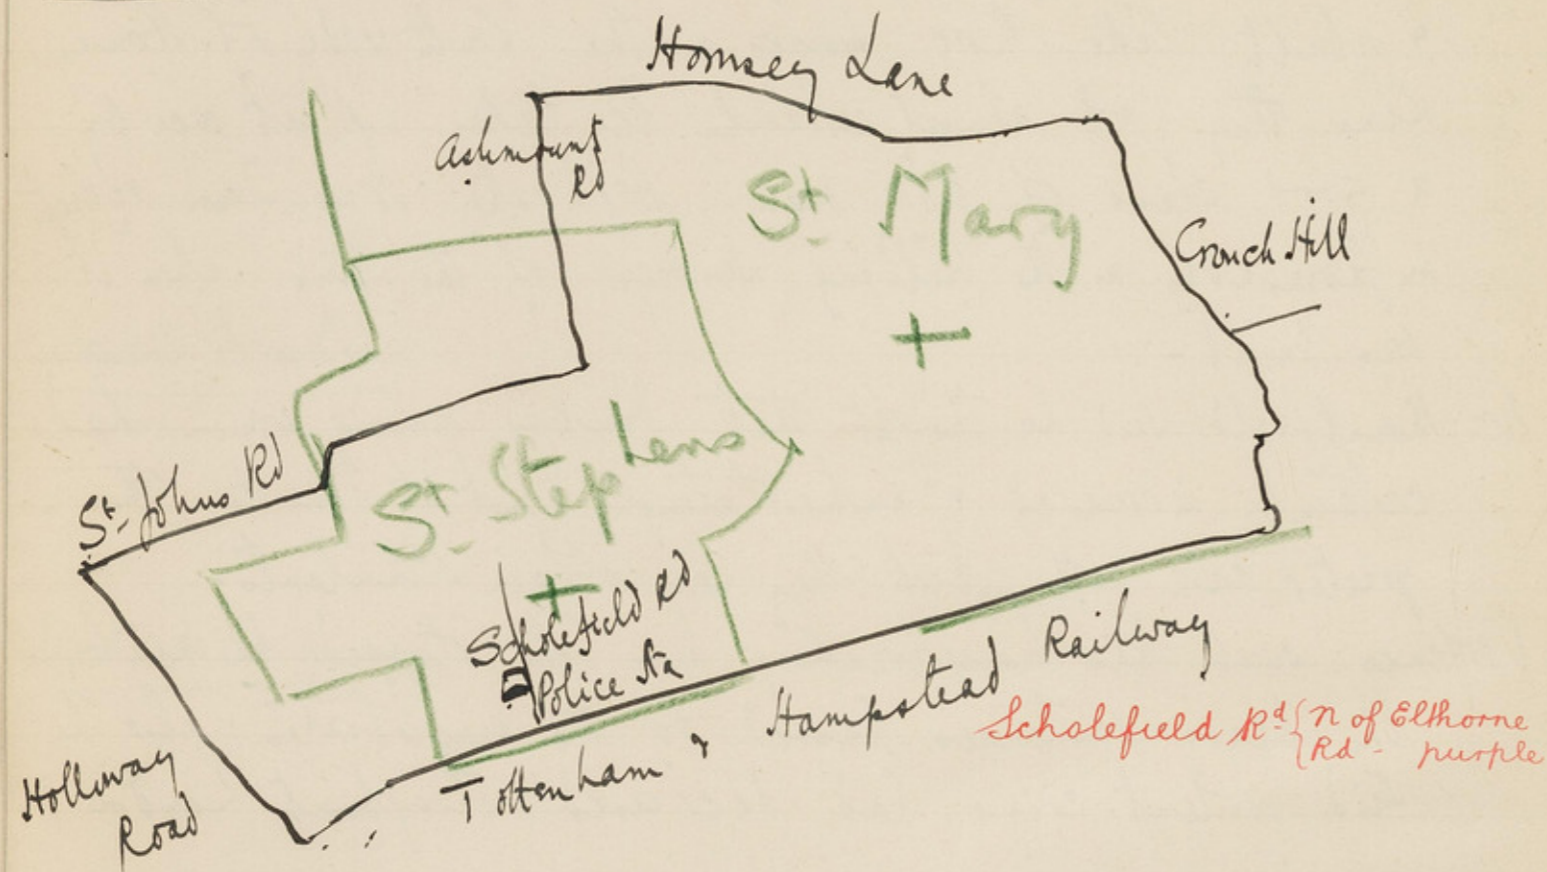 Hornsey Lane
Ashmount
Rd
St. Mary
Crouch Hill
St. Johns Rd
St. Stephens
Scholefield Rd
Police Sta
Holloway
Road
Tottenham & Hampstead Railway
Scholefield Rd { N of Elthorne
Rd - purple